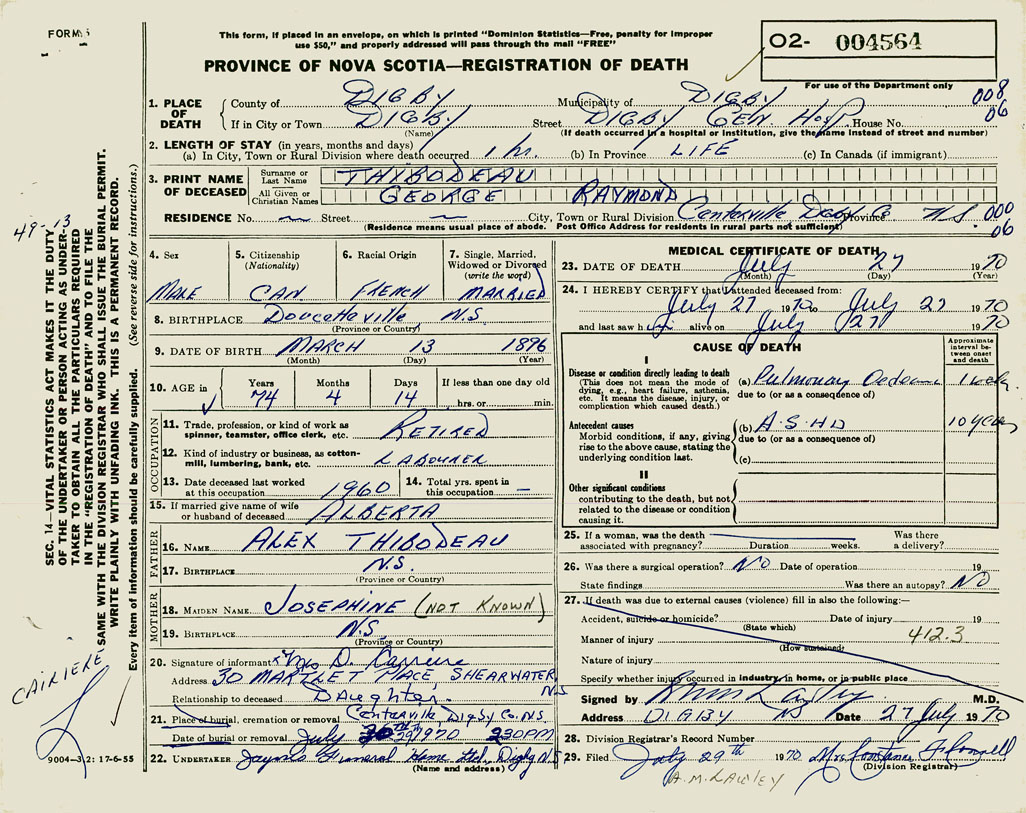 FORM 5
This form, if placed in an envelope, on which is printed "Dominion Statistics—Free, penalty for improper
use $50," and properly addressed will pass through the mail "FREE"
PROVINCE OF NOVA SCOTIA—REGISTRATION OF DEATH
O2- 004564
For use of the Department only
008
06
1. PLACE OF DEATH
County of DIGBY Municipality of DIGBY
If in City or Town DIGBY Street DIGBY GEN. Hosp House No.
(Name) (If death occurred in a hospital or institution, give the name instead of street and number)
2. LENGTH OF STAY (in years, months and days)
(a) In City, Town or Rural Division where death occurred 1 hr. (b) In Province LIFE (c) In Canada (if immigrant)
3. PRINT NAME OF DECEASED
Surname or Last Name THIBODEAU
All Given or Christian Names GEORGE RAYMOND
RESIDENCE No. ~ Street ~ City, Town or Rural Division Centerville Digby Co Province N.S.
000
06
(Residence means usual place of abode. Post Office Address for residents in rural parts not sufficient)
49-13
SEC. 14—VITAL STATISTICS ACT MAKES IT THE DUTY
OF THE UNDERTAKER OR PERSON ACTING AS UNDER-
TAKER TO OBTAIN ALL THE PARTICULARS REQUIRED
IN THE "REGISTRATION OF DEATH" AND TO FILE THE
SAME WITH THE DIVISION REGISTRAR WHO SHALL ISSUE THE BURIAL PERMIT.
WRITE PLAINLY WITH UNFADING INK. THIS IS A PERMANENT RECORD.
Every item of information should be carefully supplied. (See reverse side for instructions.)
4. Sex MALE
5. Citizenship (Nationality) CAN
6. Racial Origin FRENCH
7. Single, Married, Widowed or Divorced (write the word) MARRIED
8. BIRTHPLACE Doucetteville N.S.
(Province or Country)
9. DATE OF BIRTH MARCH 13 1896
(Month) (Day) (Year)
10. AGE in Years Months Days If less than one day old
74 4 14 hrs. or min.
OCCUPATION
11. Trade, profession, or kind of work as spinner, teamster, office clerk, etc. RETIRED
12. Kind of industry or business, as cotton-mill, lumbering, bank, etc. LABOURER
13. Date deceased last worked at this occupation 1960
14. Total yrs. spent in this occupation —
15. If married give name of wife or husband of deceased ALBERTA
FATHER
16. NAME ALEX THIBODEAU
17. BIRTHPLACE N.S.
(Province or Country)
MOTHER
18. MAIDEN NAME JOSEPHINE (NOT KNOWN)
19. BIRTHPLACE N.S.
(Province or Country)
20. Signature of informant x Mrs D. Carriere
Address 30 MARTLET PLACE SHEARWATER NS
Relationship to deceased Daughter
21. Place of burial, cremation or removal Centerville, Digby Co. N.S.
Date of burial or removal July 29th 1970 230PM
22. UNDERTAKER Jayne's Funeral Home Ltd, Digby N.S.
(Name and address)
CAIRIERE
9004—3 2: 17-6-55
MEDICAL CERTIFICATE OF DEATH
23. DATE OF DEATH July 27 1970
(Month) (Day) (Year)
24. I HEREBY CERTIFY that I attended deceased from:
July 27 1970 to July 27 1970
and last saw him alive on July 27 1970
CAUSE OF DEATH
Approximate interval between onset and death
I
Disease or condition directly leading to death
(This does not mean the mode of dying, e.g., heart failure, asthenia, etc. It means the disease, injury, or complication which caused death.)
(a) Pulmonary Oedema
due to (or as a consequence of)
Antecedent causes
Morbid conditions, if any, giving rise to the above cause, stating the underlying condition last.
(b) A.S.H.D 10 years
due to (or as a consequence of)
(c)
II
Other significant conditions
contributing to the death, but not related to the disease or condition causing it.
25. If a woman, was the death associated with pregnancy? Duration weeks. Was there a delivery?
26. Was there a surgical operation? NO Date of operation 19
State findings Was there an autopsy? NO
27. If death was due to external causes (violence) fill in also the following:—
Accident, suicide or homicide? Date of injury 19
(State which)
Manner of injury 412.3
(How sustained)
Nature of injury
Specify whether injury occurred in industry, in home, or in public place
Signed by M.D.
Address DIGBY NS Date 27 July 1970
28. Division Registrar's Record Number
29. Filed July 29th 1970 Mrs
(Division Registrar)
A.M. LAWLEY